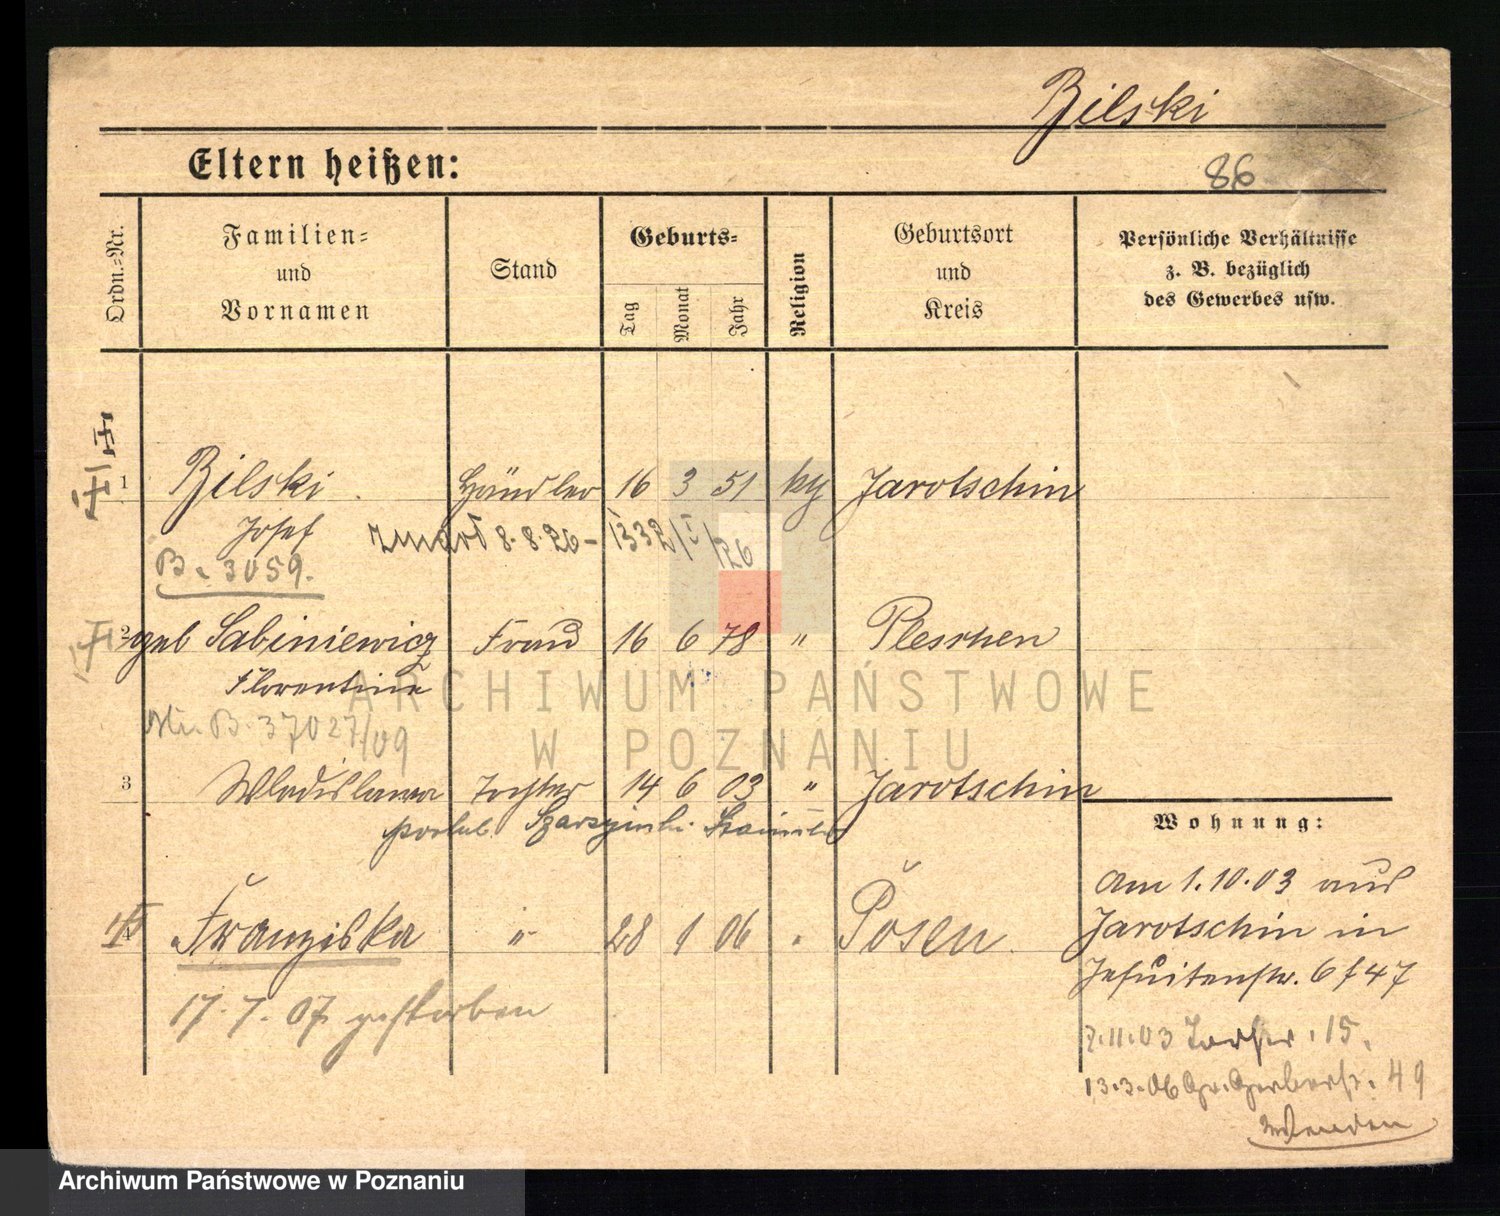 Bilski
Eltern heißen:
86
Ordn.-Nr.
Familien-
und
Vornamen
Stand
Geburts-
Tag
Monat
Jahr
Religion
Geburtsort
und
Kreis
Persönliche Verhältnisse
z. B. bezüglich
des Gewerbes usw.
1 Bilski Händler 16 3 51 Jarotschin
Josef zmarł 8.8.26 - 1332/I/26
B. 3059.
2 geb Sabiniewicz Frau 16 6 78 " Pleschen
Florentine
B. 37027/09
3 Wladislawa Tochter 14 6 03 " Jarotschin
Franziska " 28 1 06 " Posen
17.7.07 gestorben
Wohnung:
Am 1.10.03 aus
Jarotschin in
Jesuitenstr. 6 f 47
7.11.03 15.
13.3.06 Gr. Gerberstr. 49
Wenden
ARCHIWUM PAŃSTWOWE
W POZNANIU
Archiwum Państwowe w Poznaniu